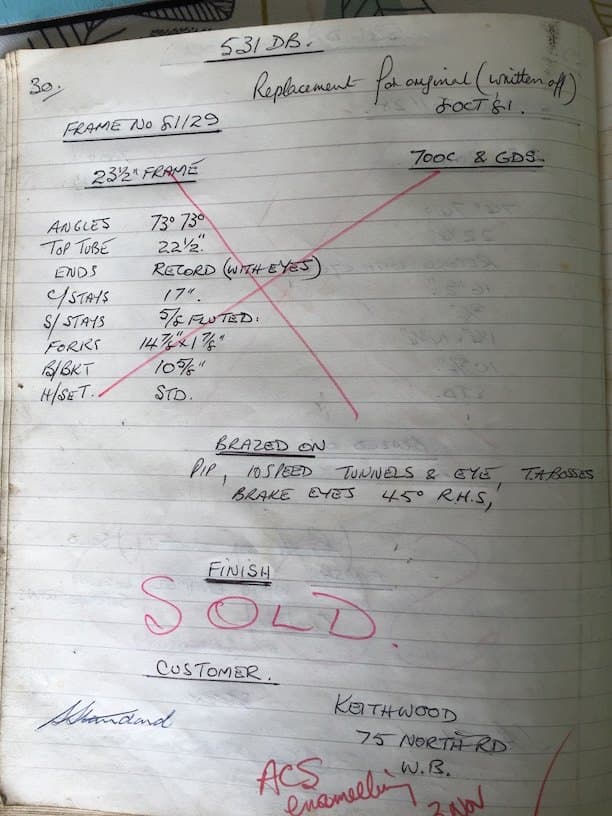 531 DB.
30.
Replacement for original (written off)
8 OCT 81.
FRAME NO 81/29
23½" FRAME
700C & GDS.
ANGLES 73° 73°
TOP TUBE 22½".
ENDS RECORD (WITH EYES)
C/STAYS 17".
S/STAYS 5/8 FLUTED.
FORKS 14⅞" x 1⅞"
B/BKT 10⅝"
H/SET. STD.
BRAZED ON
PIP, 10 SPEED TUNNELS & EYE, TABOSSES
BRAKE EYES 45° R.H.S,
FINISH
SOLD.
CUSTOMER.
KEITHWOOD
75 NORTH RD
W.B.
ACS
enamelling
3 NOV